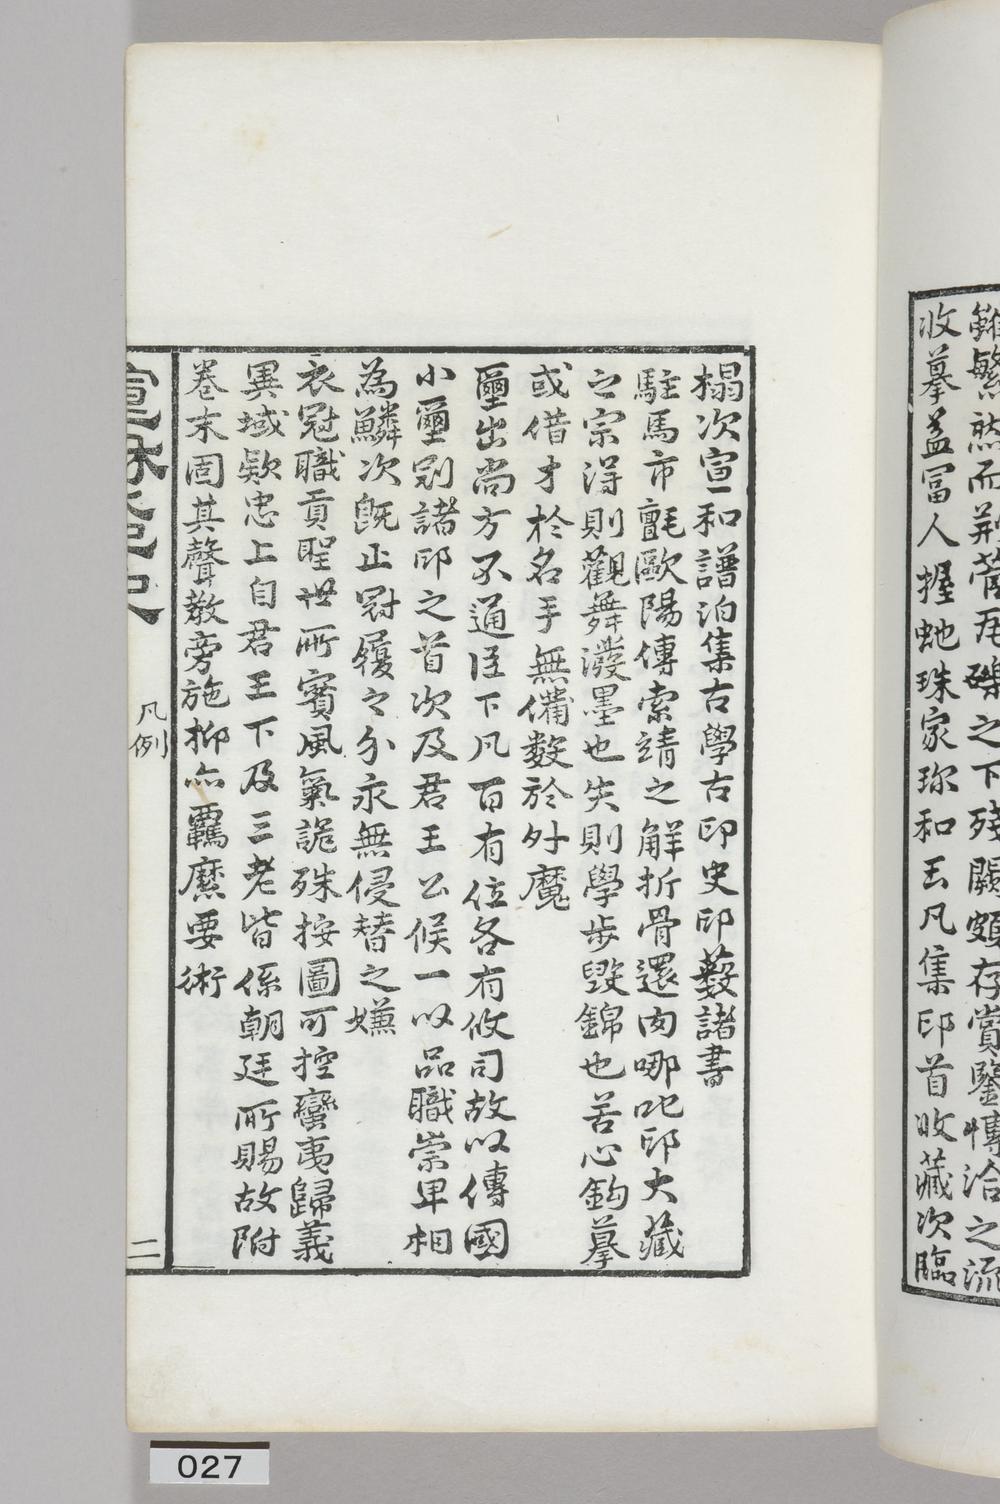 雖繁然而荆膏瓦礫之下殘闕頗存賞鑒博洽之流
收摹盖冨人握虵珠家珎和玉凡集印首收藏次臨
榻次宣和譜洎集古學古印史印藪諸書
駐馬市氈歐陽傳索靖之解折骨還肉哪吒印大藏
之宗得則觀舞潑墨也失則學步毀錦也苦心鈎摹
或借才於名手無備數於外魔
璽出尚方不通臣下凡百有位各有攸司故以傳國
小璽别諸印之首次及君王公候一以品職崇卑相
為鱗次既正冠履之分永無侵替之嫌
衣冠職貢聖世所賓風氣詭殊按圖可控蠻夷歸義
異域欵忠上自君王下及三老皆係朝廷所賜故附
卷末固其聲教旁施抑亦羈縻要術
凡例
二